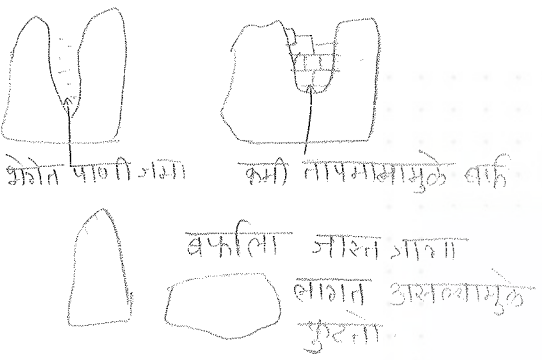 भेगेत पाणी जमा
कमी तापमानामुळे बर्फ
बर्फाला जास्त जागा
लागत असल्यामुळे
फुटतो